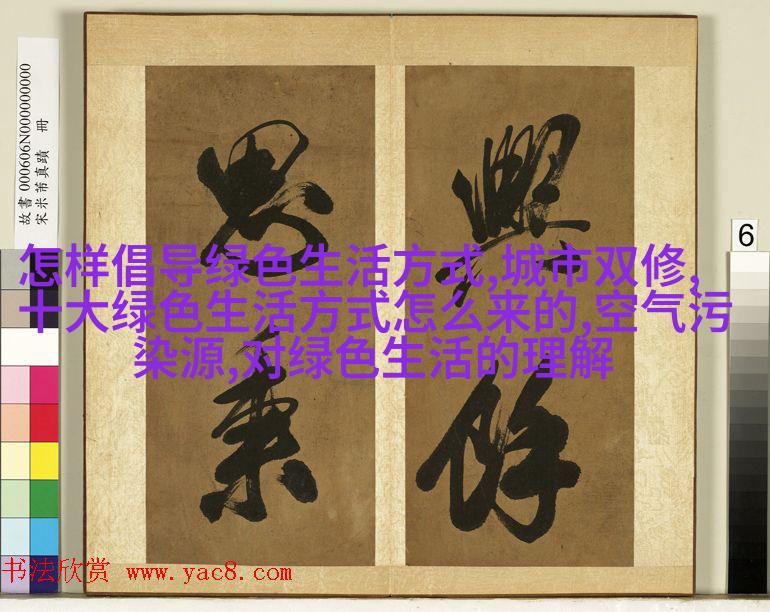 故書 000606N000000000
宋米芾真蹟 冊
興
餘
6
怎样倡导绿色生活方式,城市双修,
十大绿色生活方式怎么来的,空气污
染源,对绿色生活的理解
书法欣赏 www.yac8.com